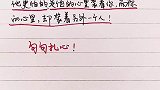 他更怕的是他的心里装着你，而你
的心里，却装着另外一个人！
句句扎心！